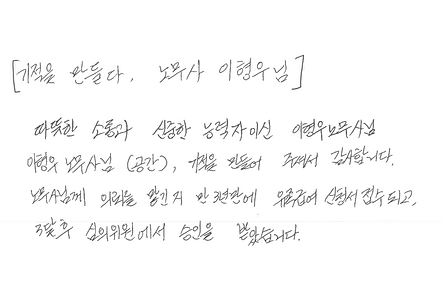 [기적을 만들다, 노무사 이형우님]
따뜻한 소통과 신중한 능력자이신 이형우노무사님
이형우 노무사님 (공간), 기적을 만들어 주셔서 감사합니다.
노무사님께 의뢰를 맡긴지 만 3년만에 유족급여 신청서 접수 되고,
3달후 심의위원에서 승인을 받았습니다.